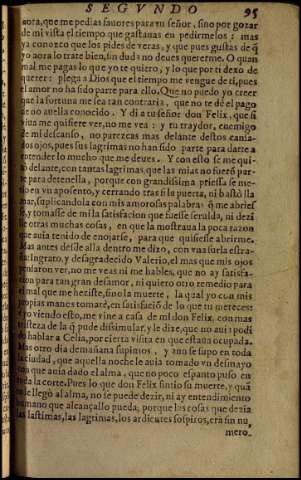 SEGVNDO 95
ñora, que me pedias fauores para tu señor, sino por gozar
de mi vista el tiempo que gastauas en pedirmelos: mas
ya conozco que los pides de veras, y que pues gustas de q̃
yo aora lo trate bien, sin duda no deues quererme. O quan
mal me pagas lo que yo te quiero, y lo que por ti dexo de
querer: plega a Dios que el tiempo me vengue de ti, pues
el amor no ha sido parte para ello. Que no puedo yo creer
que la fortuna me sea tan contraria, que no te dé el pago
de no auella conocido. Y di a tu señor don Felix, que si
viua me quisiere ver, no me vea: y tu traydor, enemigo
de mi descanso, no parezcas mas delante destos cansa-
dos ojos, pues sus lagrimas no han sido parte para darte a
entender lo mucho que me deues. Y con esto se me qui-
tò delante, con tantas lagrimas, que las mias no fuerõ par-
te para detenella, porque con grandissima priessa se me-
tio en vn aposento, y cerrando tras si la puerta, ni bastò lla
mar, suplicandola con mis amorosas palabras q̃ me abries
se, y tomasse de mi la satisfacion que fuesse seruida, ni dezi
lle otras muchas cosas, en que la mostraua la poca razon
que auia tenido de enojarse, para que quisiesse abrirme.
Mas antes desde alla dentro me dixo, con vna furia estra-
ña: Ingrato, y desagradecido Valerio, el mas que mis ojos
pensaron ver, no me veas ni me hables, que no ay satisfa-
cion para tan gran desamor, ni quiero otro remedio para
el mal que me heziste, sino la muerte, la qual yo con mis
propias manos tomaré, en satisfaciõ de lo que tu mereces:
e yo viendo esto, me vine a casa de mi don Felix, con mas
tristeza de la q̃ pude dissimular, y le dixe, que no auia podi
do hablar a Celia, por cierta visita en que estaua ocupada.
Mas otro dia demañana supimos, y aun se supo en toda
la ciudad, que aquella noche le auia tomado vn desmayo
con que auia dado el alma, que no poco espanto puso en
toda la corte. Pues lo que don Felix sintio su muerte, y quã
to le llegò al alma, no se puede dezir, ni ay entendimiento
humano que alcançallo pueda: porque las cosas que dezia
las lastimas, las lagrimas, los ardientes sospiros, eran sin nu,
mero.